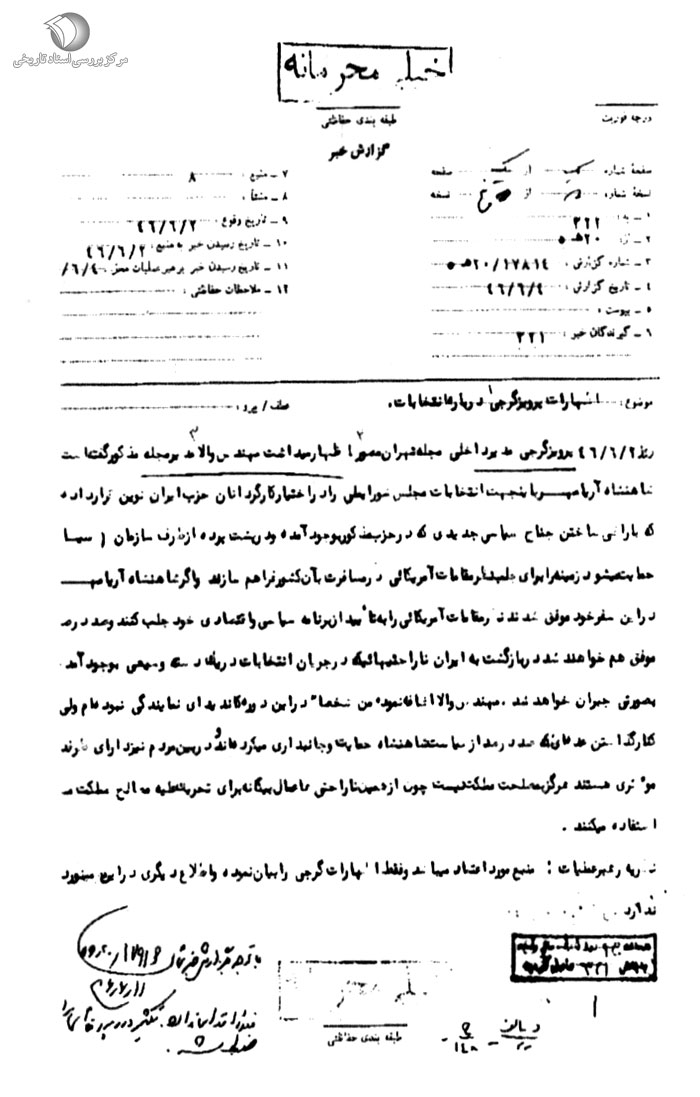 مرکز بررسی اسناد تاریخی
خیلی محرمانه
طبقه بندی حفاظتی
درجه فوریت
گزارش خبر
صفحهٔ شماره یک از یک صفحه
نسخهٔ شماره از نسخه
۱ ـ به : ۳۲۲
۲ ـ از : ۲۰ هـ ۵
۳ ـ شماره گزارش : ۲۰/۱۷۸۱۴ هـ ۵
۴ ـ تاریخ گزارش : ۴۶/۶/۴
۵ ـ پیوست :
۶ ـ گیرندگان خبر : ۳۲۱
۷ ـ منبع : ۸
۸ ـ منشأ :
۹ ـ تاریخ وقوع : ۴۶/۶/۲
۱۰ ـ تاریخ رسیدن خبر به منبع : ۴۶/۶/۲
۱۱ ـ تاریخ رسیدن خبر برهبر عملیات محل /۶/۴
۱۲ ـ ملاحظات حفاظتی :
موضوع : اظهارات پرویزگرجی درباره انتخابات.
عطف / پیرو :
روز ۴۶/۶/۲ پرویزگرجی مدیر داخلی مجله تهران مصور اظهار میداشت مهندس والا مدیر مجله مذکور گفته است
شاهنشاه آریامهر باینجهت انتخابات مجلس شورایملی را در اختیار کارگردانان حزب ایران نوین قرار داده
که با راضی ساختن جناح سیاسی جدیدی که در حزب مذکور بوجود آمده و در پشت پرده از طرف سازمان سیا
حمایت میشود زمینه را برای جلب نظر مقامات آمریکائی در مسافرت بآن کشور فراهم سازند واگر شاهنشاه آریامهر
در این سفر خود موفق شدند نظر مقامات آمریکائی را به تأیید از برنامه سیاسی و اقتصادی خود جلب کنند و صد در صد
موفق هم خواهند شد در بازگشت به ایران ناراحتیهائیکه در جریان انتخابات در یک دسته وسیعی بوجود آمده
بصورتی جبران خواهد شد . مهندس والا اضافه نموده من شخصا در این دوره کاندیدای نمایندگی نبوده‌ام ولی
کنار گذاشتن عده‌ای که صد درصد از سیاست شاهنشاه حمایت و جانبداری میکرده‌اند و در بین مردم نیز دارای نفوذ
موثری هستند هرگز بمصلحت مملکت نیست چون از همین ناراحتی عمال بیگانه برای تحریک علیه مصالح مملکت
استفاده میکنند .
نظریه رهبر عملیات : منبع مورد اعتماد میباشد و فقط اظهارات گرجی را بیان نموده و اطلاع دیگری در این مورد
ندارد
با توجه
۴۶/۶/۱۱
طبقه بندی حفاظتی